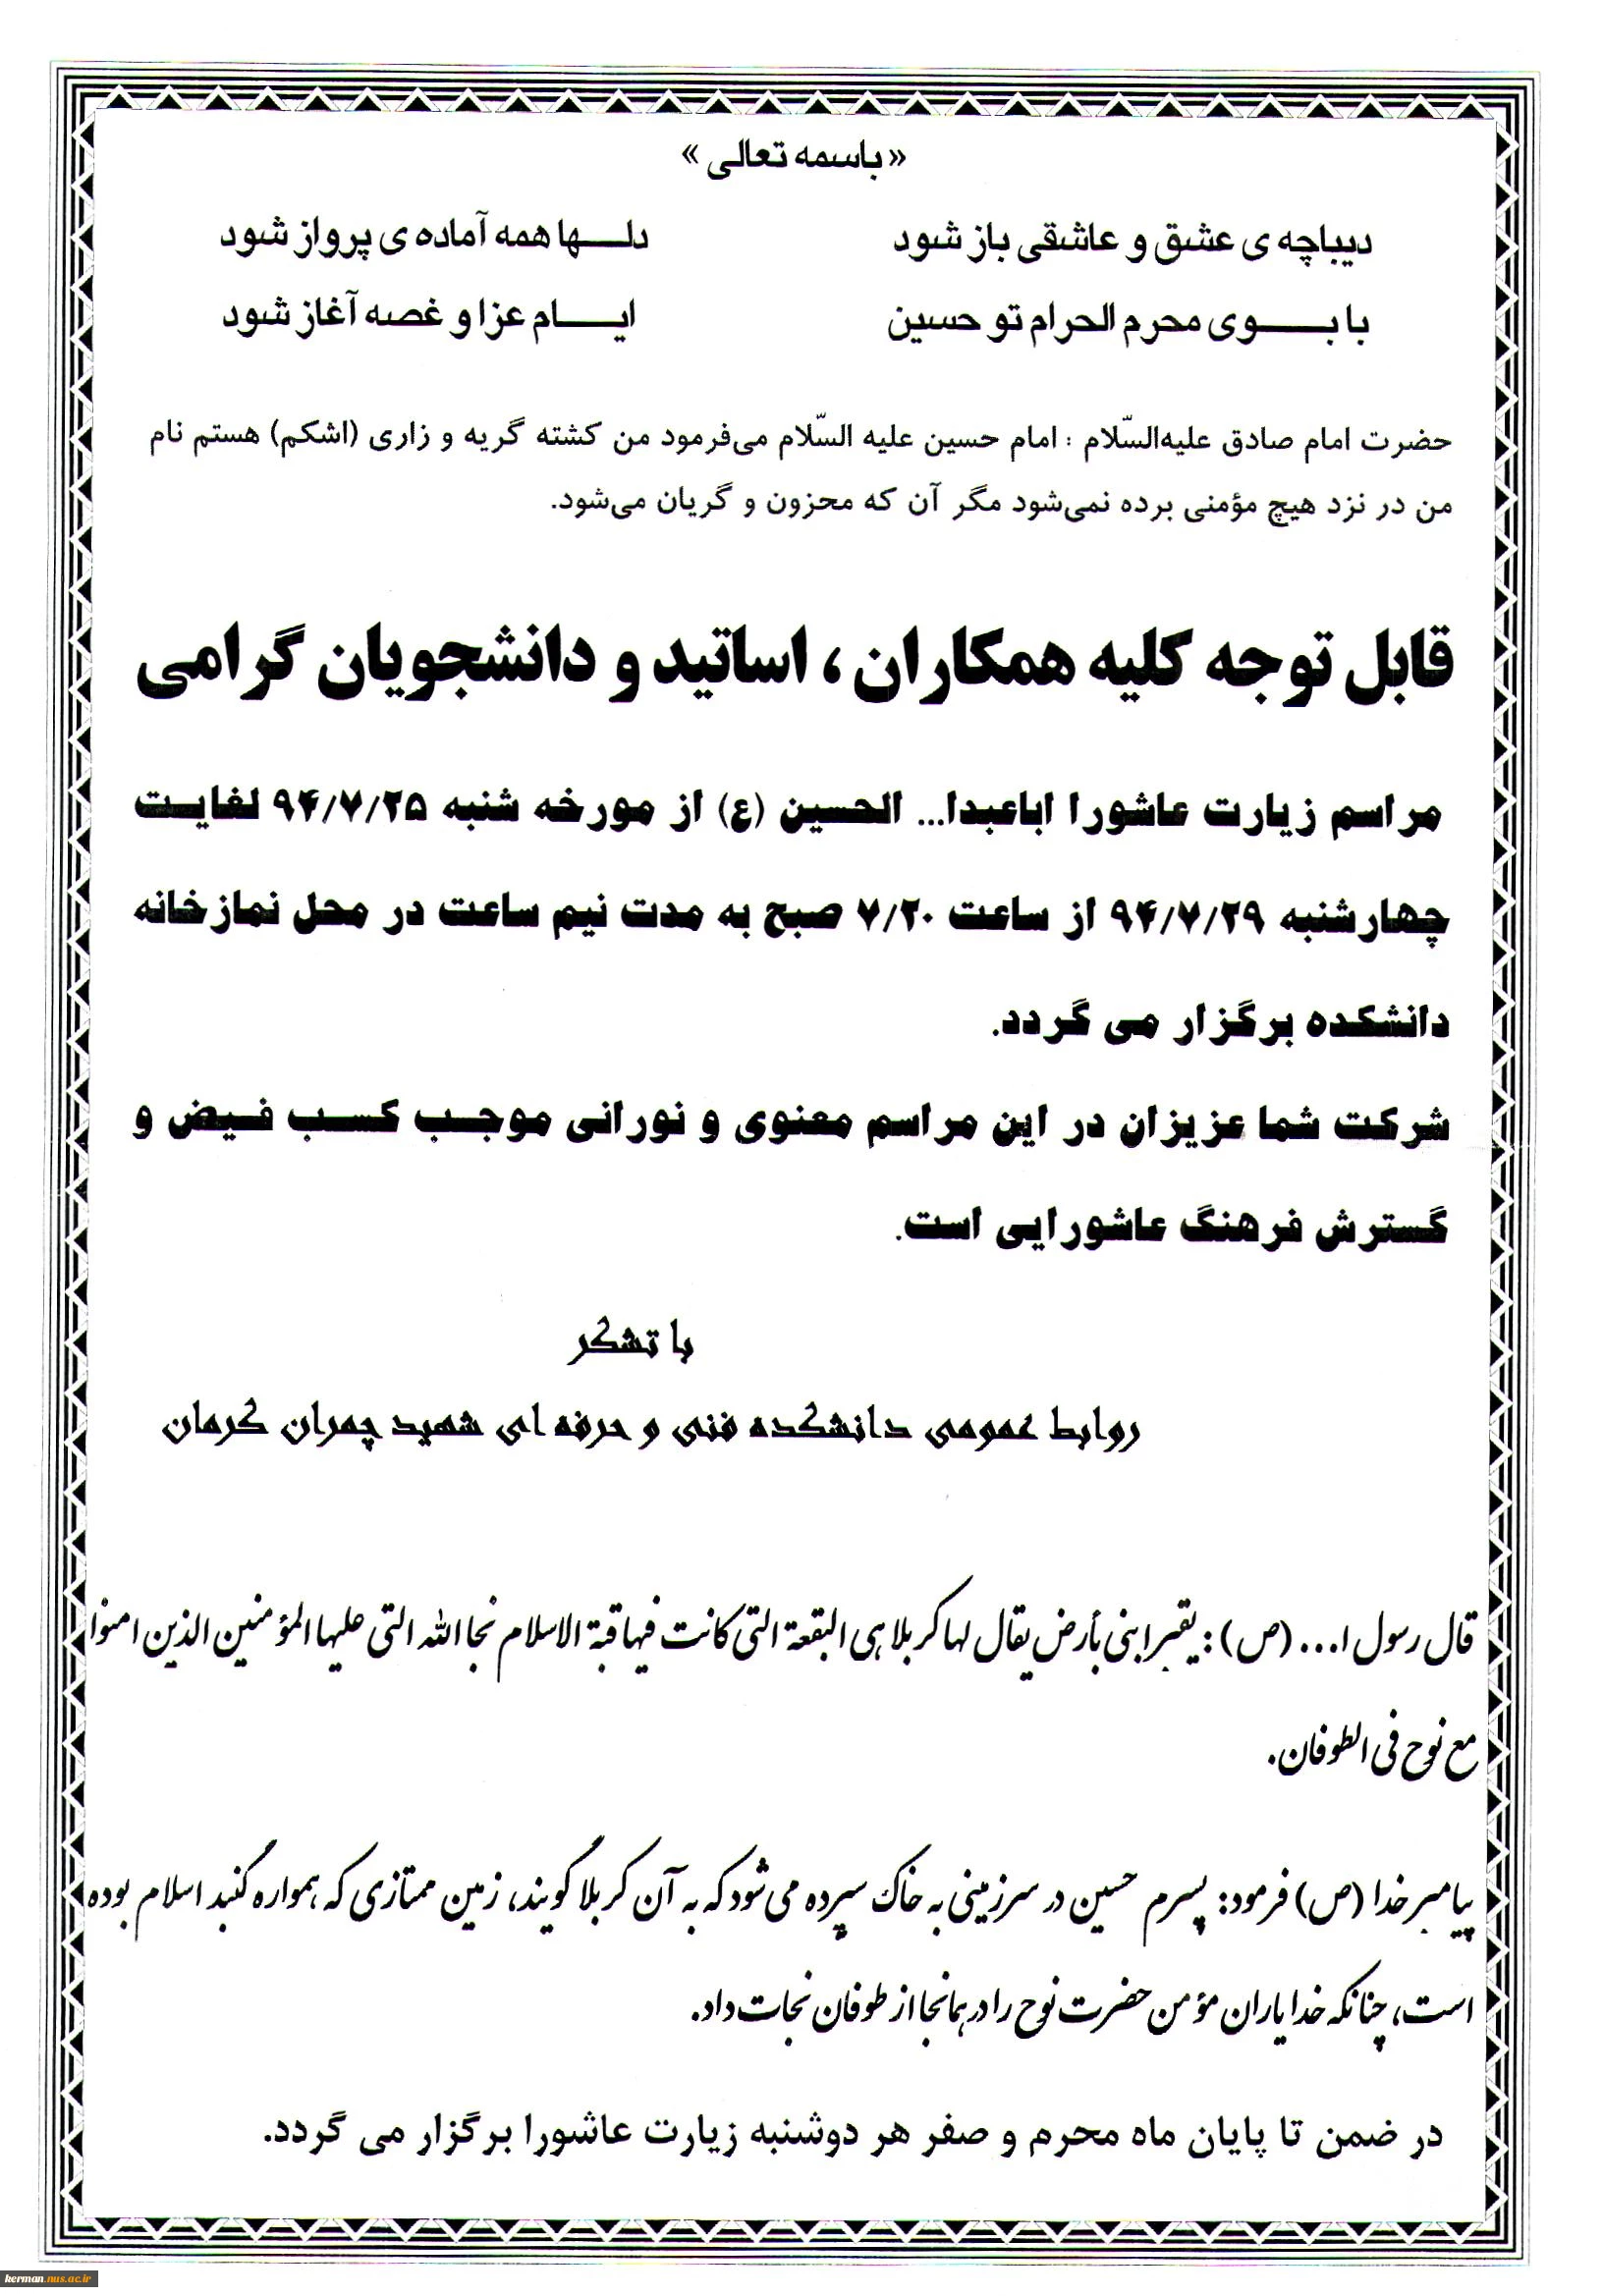 «باسمه تعالی»
دیباچه ی عشق و عاشقی باز شود دلـــها همه آماده ی پرواز شود
با بـــــوی محرم الحرام تو حسین ایـــــام عزا و غصه آغاز شود
حضرت امام صادق علیه‌السّلام : امام حسین علیه السّلام می‌فرمود من کشته گریه و زاری (اشکم) هستم نام
من در نزد هیچ مؤمنی برده نمی‌شود مگر آن که محزون و گریان می‌شود.
قابل توجه کلیه همکاران ، اساتید و دانشجویان گرامی
مراسم زیارت عاشورا اباعبدا... الحسین (ع) از مورخه شنبه ۹۴/۷/۲۵ لغایت
چهارشنبه ۹۴/۷/۲۹ از ساعت ۷/۲۰ صبح به مدت نیم ساعت در محل نمازخانه
دانشکده برگزار می گردد.
شرکت شما عزیزان در این مراسم معنوی و نورانی موجب کسب فیض و
گسترش فرهنگ عاشورایی است.
با تشکر
روابط عمومی دانشکده فنی و حرفه ای شهید چمران کرمان
قال رسول ا... (ص) : یقبر ابنی بأرض یقال لها کربلا هی البقعة التی کانت فیها قبة الاسلام نجا الله التی علیها المؤمنین الذین امنوا
مع نوح فی الطوفان.
پیامبر خدا (ص) فرمود: پسرم حسین در سرزمینی به خاک سپرده می شود که به آن کربلا گویند، زمین ممتازی که همواره گنبد اسلام بوده
است، چنانکه خدا یاران مؤمن حضرت نوح را در همانجا از طوفان نجات داد.
در ضمن تا پایان ماه محرم و صفر هر دوشنبه زیارت عاشورا برگزار می گردد.
kerman.nus.ac.ir